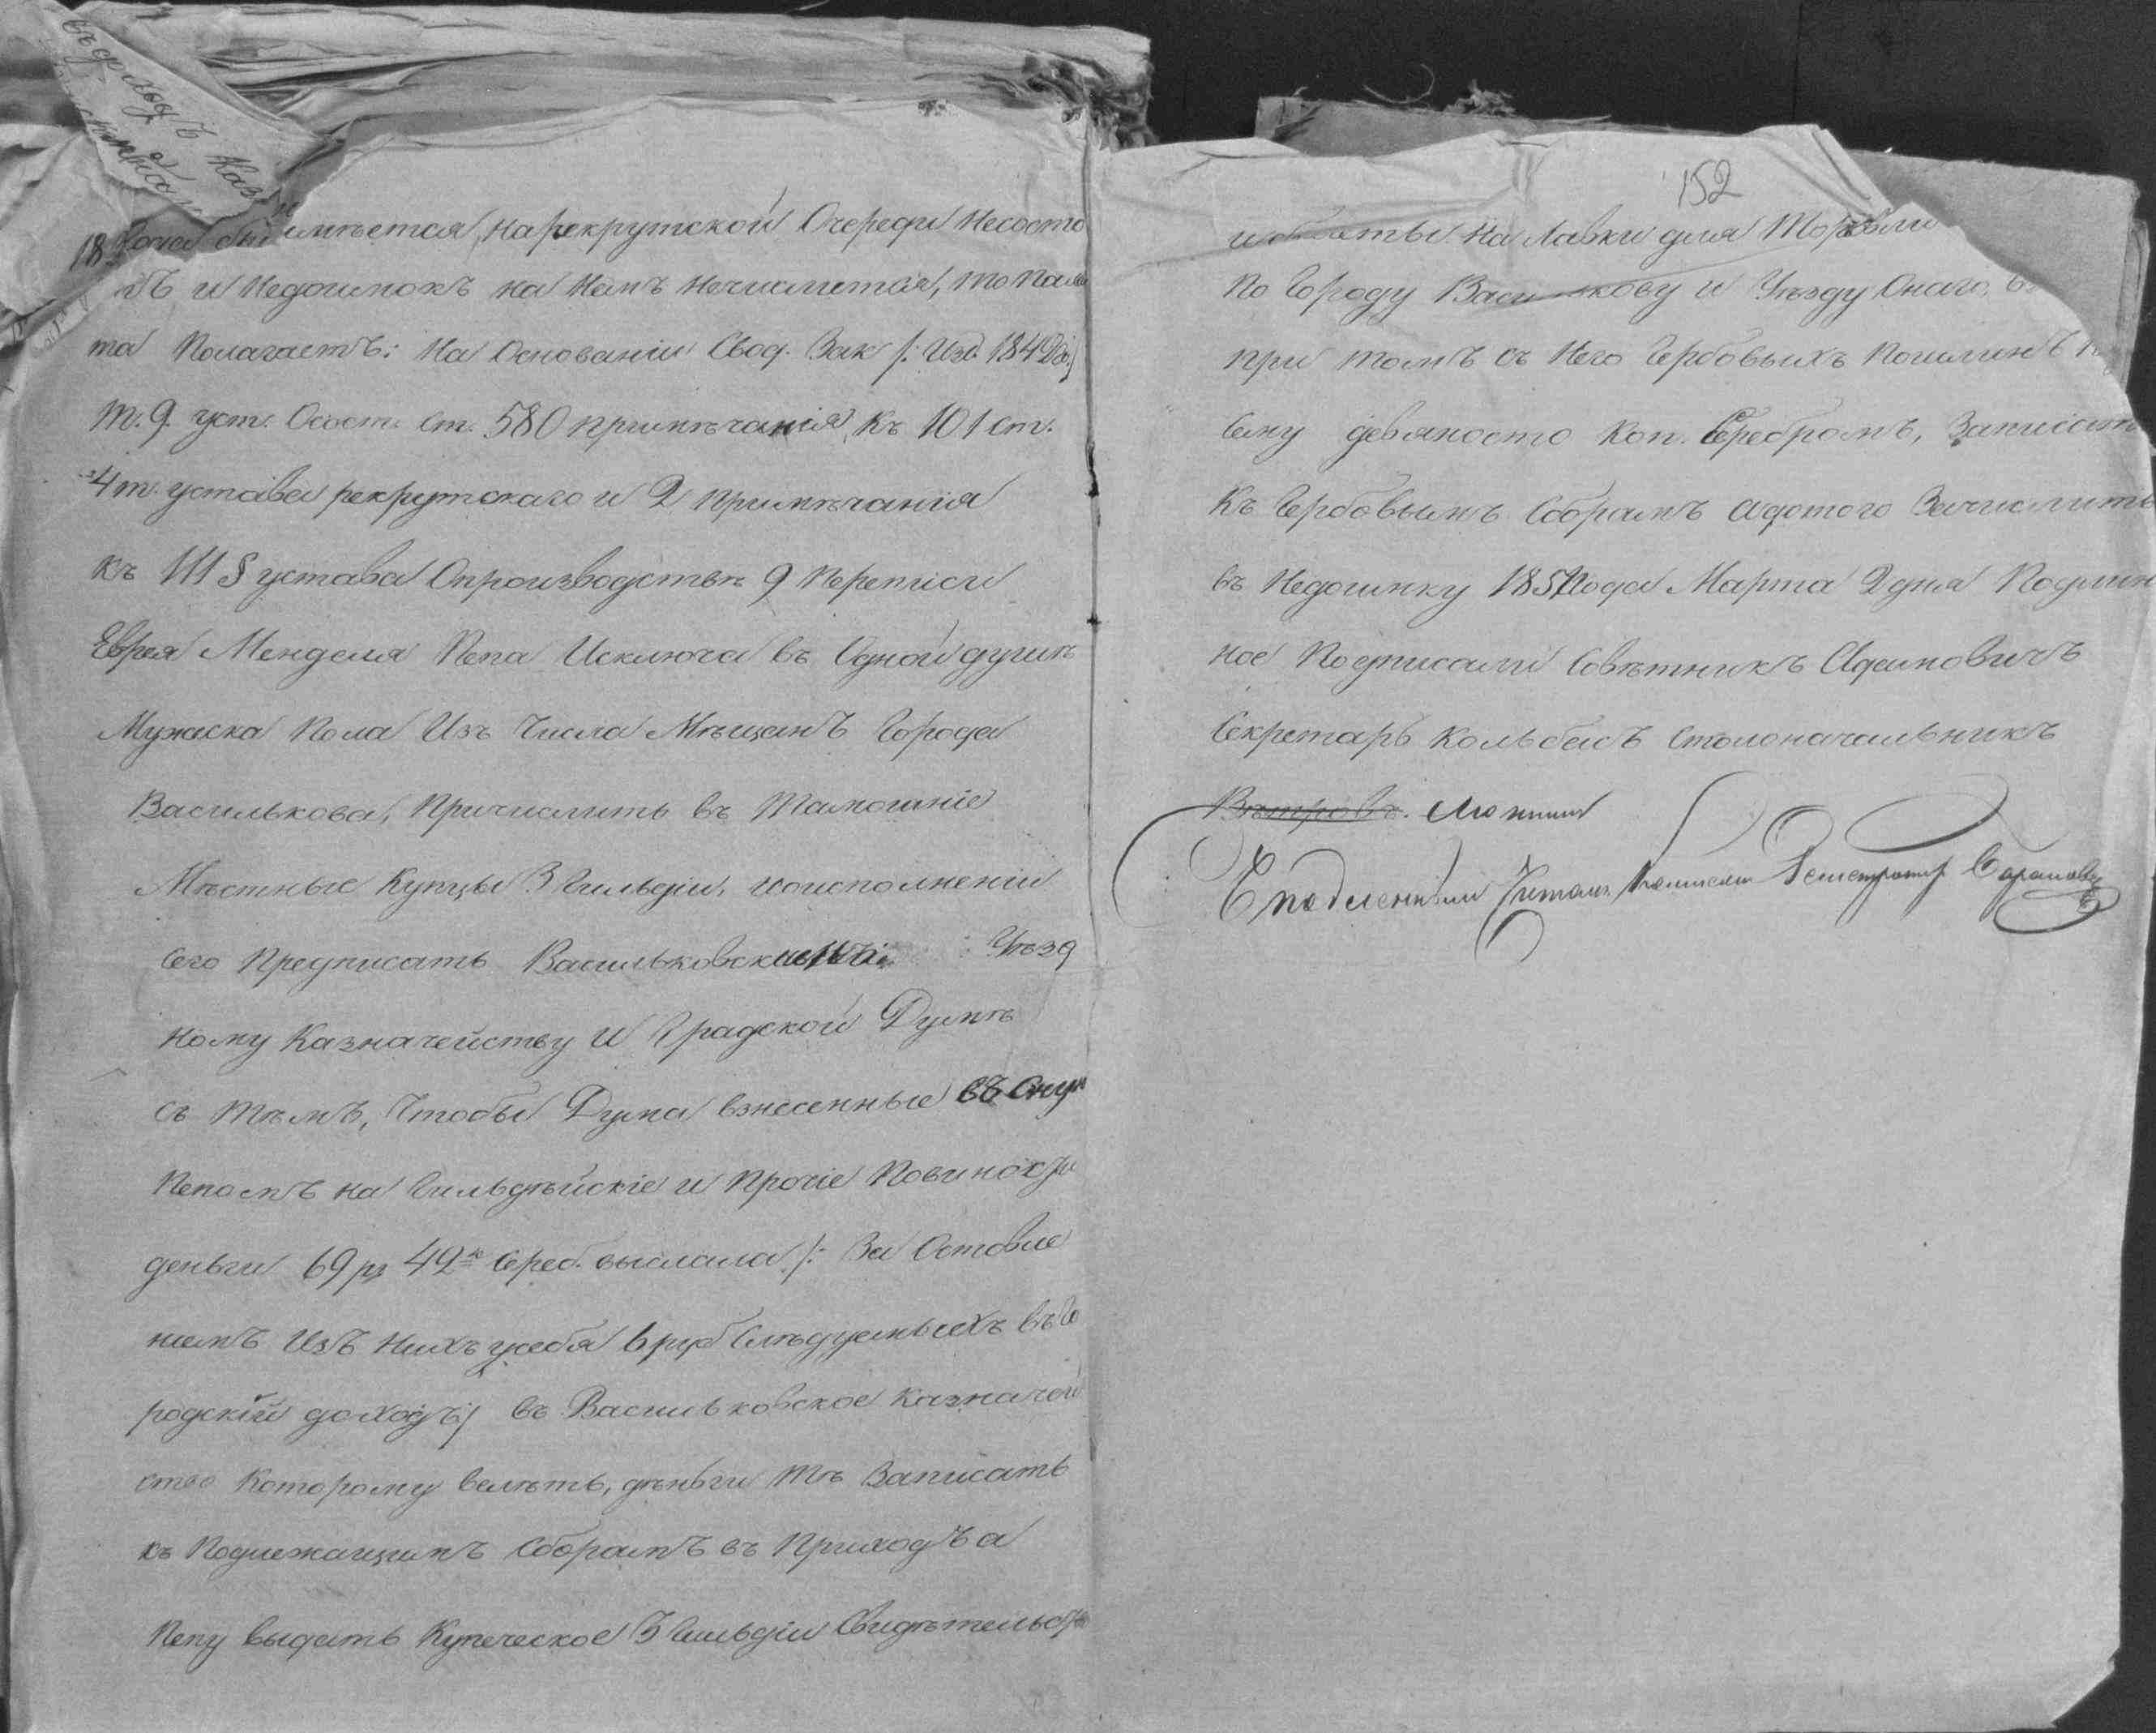 имѣется, на рекрутской Очереди Несосто
тъ и Недоимокъ на Немъ Нечислится, то Пала
та Полагаетъ: На Основаніи Свод. Зак /: Изд. 1842 г:/
т. 9. уст. Осост. ст. 580 примѣчанія, къ 101 ст.
4 т. устава рекрутскаго и 2 Примѣчанія
къ 111 § устава Опроизводствѣ 9 Переписи
Еврея Менделя Пепа Исключа въ Одной душѣ
Мужеска Пола Изъ Числа Мѣщанъ Города
Василькова, Причислить въ Тамошніе
Мѣстные Купцы 3 Гильдіи, и о исполненіи
сего Предписать Васильковскому Уѣзд
ному Казначейству и Градской Думѣ
съ тѣмъ, Чтобы Дума взнесенные въ Оную
Пепомъ на Гильдѣйскіе и Прочіе Повинос
деньги 69 р 42 к Сереб. выслала /: За Оставле
ніемъ Изъ Нихъ усебя 6 руб Слѣдуемыхъ въ Го
родскій доходъ:/ въ Васильковское Казначей
ство Которому велѣть, дѣньги Тѣ Записать
къ Подлежащимъ Сборамъ въ Приходъ а
Пепу выдать Купеческое 3 Гильдіи Свидѣтельст
152
и билеты на Лавки для Торговли
По Городу Василькову и Уѣзду Онаго,
при томъ съ Него Гербовыхъ Пошлинъ
сему девяносто Коп. Серебромъ, Записать
Къ Гербовымъ Сборамъ адотого Зачислить
въ Недоимку 1851 Года Марта 2 дня Подлин
ное Подписали Совѣтникъ Адамовичъ
Секретарь Кольбасъ Столоначальникъ
Вѣтровъ.
Съ подлиннымъ Читалъ Регистраторъ